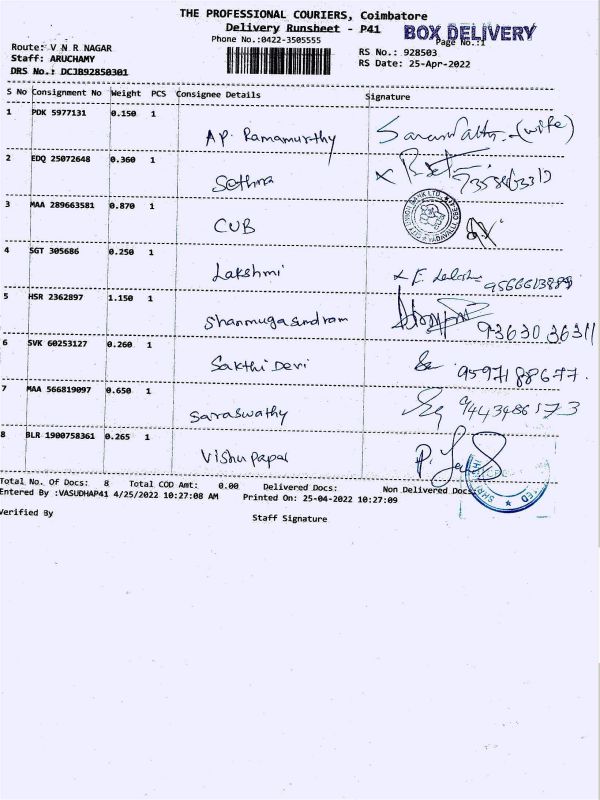 THE PROFESSIONAL COURIERS, Coimbatore
Delivery Runsheet - P41
BOX DELIVERY
Phone No.:0422-3505555
Page No.:1
Route: V N R NAGAR
RS No.: 928503
Staff: ARUCHAMY
RS Date: 25-Apr-2022
DRS No.: DCJB92850301
S No Consignment No Weight PCS Consignee Details Signature
1 PDK 5977131 0.150 1
AP. Ramamurthy (wife)
2 EDQ 25072648 0.360 1
Sethma
3 MAA 289663581 0.870 1
CUB
4 SGT 305686 0.250 1
Lakshmi
5 HSR 2362897 1.150 1
Shanmuga sundram 9363036311
6 SVK 60253127 0.260 1
Sakthi Devi 9597188677
7 MAA 566819097 0.650 1
Saraswathy
8 BLR 1900758361 0.265 1
Vishu papal
Total No. Of Docs: 8 Total COD Amt: 0.00 Delivered Docs: Non Delivered Docs:
Entered By :VASUDHAP41 4/25/2022 10:27:08 AM Printed On: 25-04-2022 10:27:09
Verified By
Staff Signature